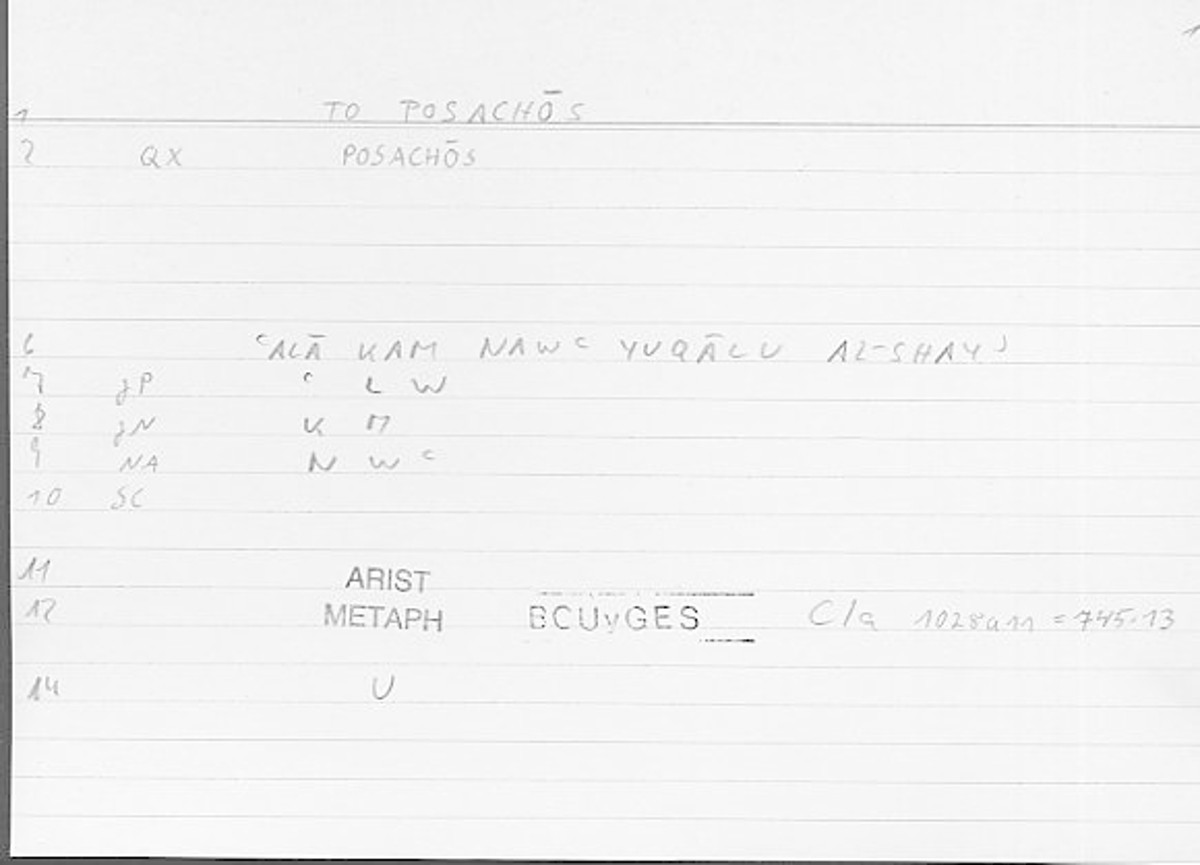 1 TO POSACHŌS
2 QX POSACHŌS
6 ʿALĀ KAM NAWʿ YUQĀLU AL-SHAYʾ
7 JP ʿ L W
8 JN K M
9 NA N W ʿ
10 SC
11 ARIST
12 METAPH BCUyGES C/a 1028a11 = 745.13
14 U